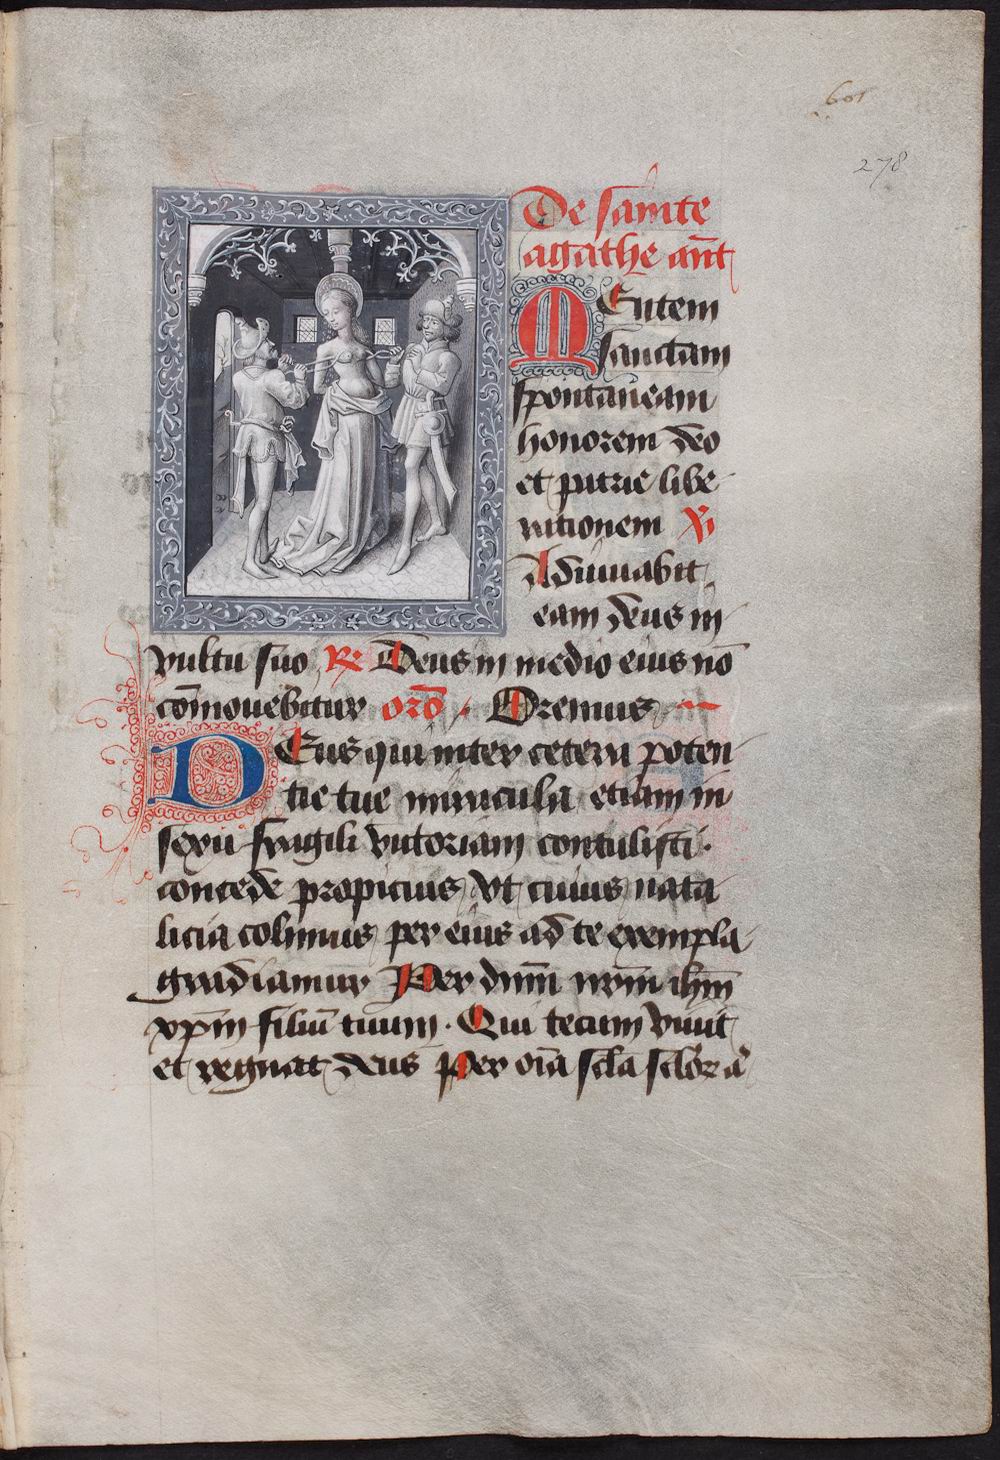 601
278
De sancte
agathe ant̄
MEntem
sanctam
spontaneam
honorem deo
et patrie libe
rationem V̸
Adiuuabit
eam deus in
vultu suo R̸ Deus in medio eius nō
cōmouebitur orō Oremus
DEus qui inter cetera poten
tie tue miracula etiam in
sexu fragili victoriam contulisti·
concede propicius vt cuius nata
licia colimus per eius ad te exempla
gradiamur Per dnm̄ nrm̄ ihm̄
xp̄m filiū tuum· Qui tecum viuit
et regnat deus Per oīa scła scłor̄ a